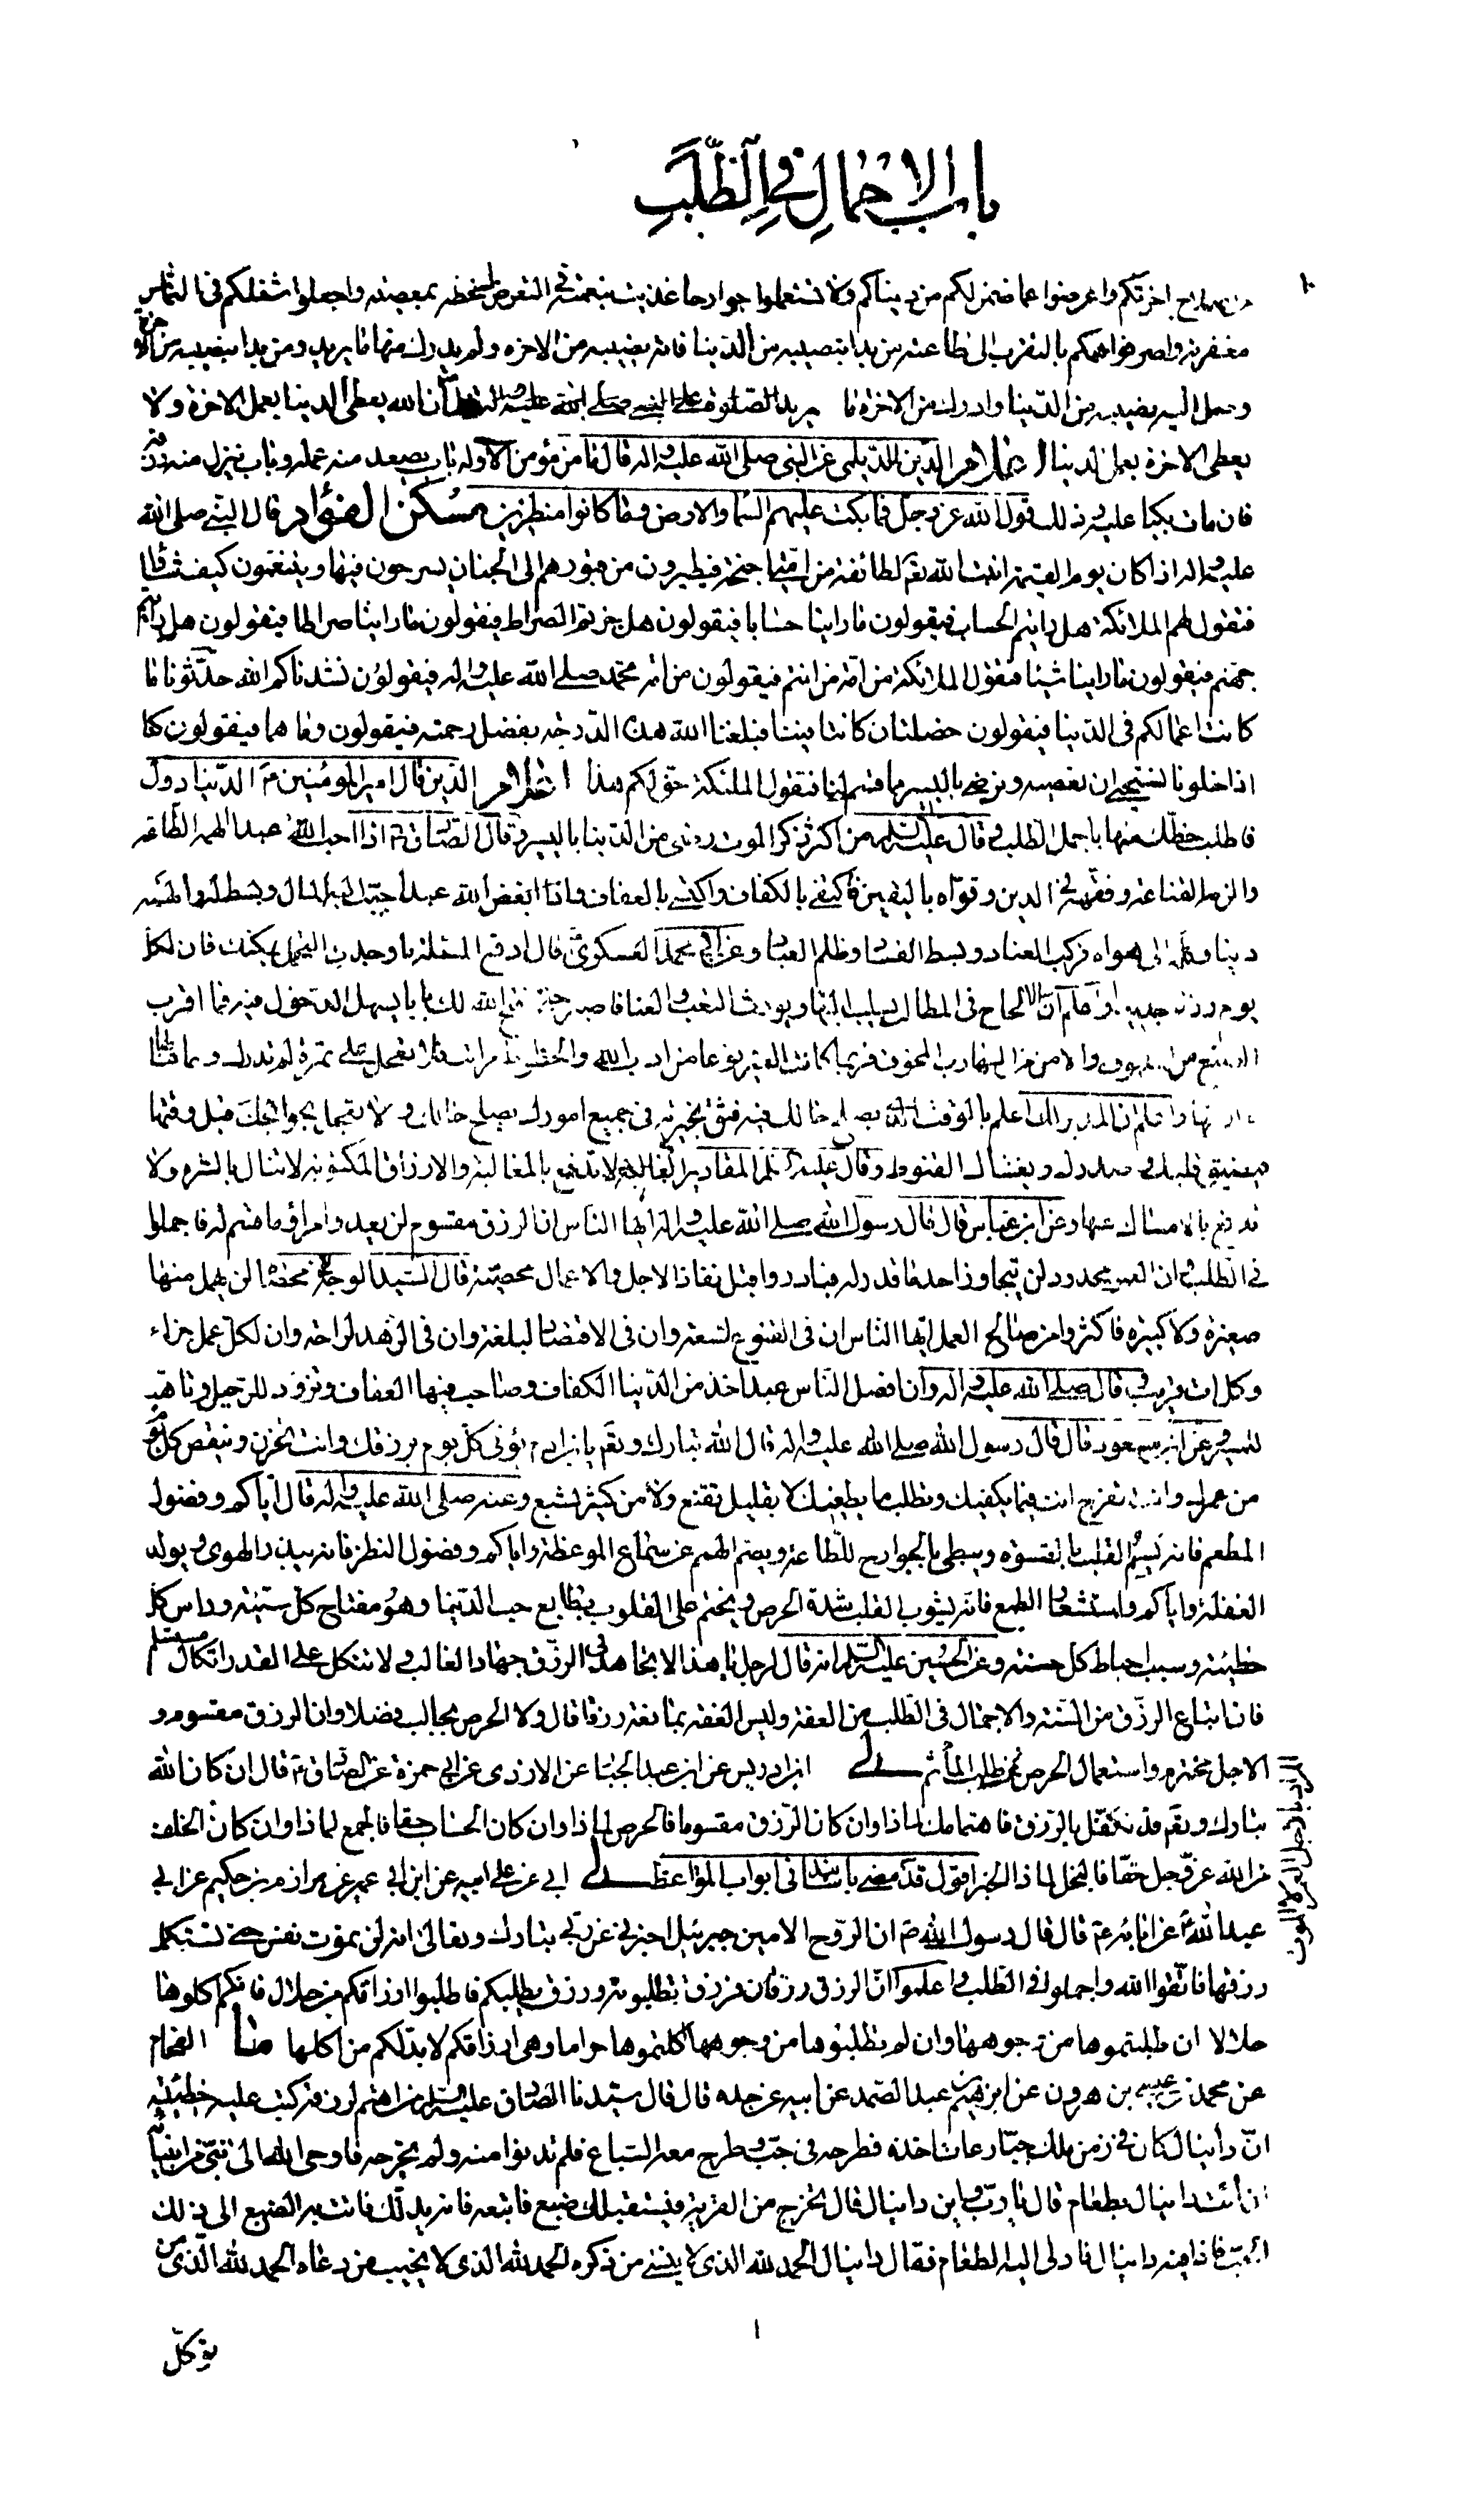 باب الاجمال في الطلب
اخرتكم واعرضوا عما ضمن لكم من دنياكم ولا تستعملوا جوارحا غذيت بنعمته في التعرض لسخطه بمعصيته واجعلوا شغلكم في التماس
مغفرته واصرفوا همكم بالتقرب الى طاعته من بدا بنصيبه من الدنيا فاته نصيبه من الاخرة ولم يدرك منها ما يريد ومن بدا بنصيبه من الاخرة
وصل اليه نصيبه من الدنيا وادرك من الاخرة ما يريد الصلوة على النبي صلى الله عليه واله ان الله يعطى الدنيا بعمل الاخرة ولا
يعطى الاخرة بعمل الدنيا اعلام الدين للديلمي عن النبي صلى الله عليه واله قال ما من مؤمن الا وله باب يصعد منه عمله وباب ينزل منه رزقه
فان مات بكيا عليه وذلك قول الله عز وجل فما بكت عليهم السماء والارض وما كانوا منظرين مسكن الفؤاد قال النبي صلى الله
عليه واله اذا كان يوم القيمة انبت الله تعم لطائفة من امتي اجنحة فيطيرون من قبورهم الى الجنان يسرحون فيها ويتنعمون كيف شاؤا
فتقول لهم الملائكة هل رايتم الحساب فيقولون ما راينا حسابا فيقولون هل جزتم الصراط فيقولون ما راينا صراطا فيقولون هل رايتم
جهنم فيقولون ما راينا شيئا فتقول الملائكة من امة من انتم فيقولون من امة محمد صلى الله عليه واله فيقولون نشدناكم الله حدثونا ما
كانت اعمالكم في الدنيا فيقولون خصلتان كانتا فينا فبلغنا الله هذه الدرجة بفضل رحمته فيقولون وما هما فيقولون كنا
اذا خلونا نستحيي ان نعصيه ونرضى باليسير مما قسم لنا فتقول الملئكة حق لكم هذا اعلام الدين قال امير المؤمنين ع الدنيا دول
فاطلب حظك منها باجمل الطلب وقال عليه السلم من اكثر ذكر الموت رضى من الدنيا باليسير وقال الصادق ع اذا احب الله عبدا الهمه الطاعة
والزمه القناعة وفقهه في الدين وقواه باليقين فاكتفى بالكفاف واكتسى بالعفاف واذا ابغض الله عبدا حبب اليه المال وبسط له والهمه
دنياه ووكله الى هواه فركب العناد وبسط الفساد وظلم العباد وعن ابي محمد العسكرى ع قال ادفع المسئلة ما وجدت التحمل يمكنك فان لكل
يوم رزقا جديدا واعلم ان الالحاح في المطالب يسلب البهاء ويورث التعب والعناء فاصبر حتى يفتح الله لك بابا يسهل الدخول فيه فما اقرب
الصنيع من الملهوف والامن من الهارب المخوف فربما كانت الغير نوعا من ادب الله والحظوظ مراتب فلا تعجل على ثمرة لم تدرك وانما تنالها
في اوانها واعلم ان المدبر لك اعلم بالوقت الذي يصلح حالك فيه فثق بخيرته في جميع امورك يصلح حالك ولا تعجل بحوائجك قبل وقتها
فيضيق قلبك وصدرك ويغشاك القنوط وقال عليه السلم المقادير الغالبة لا تدفع بالمغالبة والارزاق المكتوبة لا تنال بالشره ولا
تدفع بالامساك عنها وعن ابن عباس قال قال رسول الله صلى الله عليه واله ايها الناس ان الرزق مقسوم لن يعدو امرؤ ما قسم له فاجملوا
في الطلب وان العمر محدود لن يتجاوز احد ما قدر له فبادروا قبل نفاذ الاجل والاعمال محصية قال السيد الوجه في محصاة لن يهمل منها
صغيرة ولا كبيرة فاكثروا من صالح العمل ايها الناس ان في القنوع لسعة وان في الاقتصاد لبلغة وان في الزهد لراحة وان لكل عمل جزاء
وكل ات قريب وقال صلى الله عليه واله وان افضل الناس عبد اخذ من الدنيا الكفاف وصاحب فيها العفاف وتزود للرحيل وتاهب
للمسير وعن ابن مسعود قال قال رسول الله صلى الله عليه واله قال الله تبارك وتعم يا بن ادم تؤتى كل يوم برزقك وانت تحزن وينقص كل يوم
من عمرك وانت تفرح انت فيما يكفيك وتطلب ما يطغيك لا بقليل تقنع ولا من كثير تشبع وعنه صلى الله عليه واله قال اياكم وفضول
المطعم فانه يسم القلب بالقسوة ويبطى بالجوارح للطاعة ويصم الهمم عن سماع الموعظة واياكم وفضول النظر فانه يبذر الهوى ويولد
الغفلة واياكم واستشعار الطمع فانه يشوب القلب بشدة الحرص ويختم على القلوب بطابع حب الدنيا وهو مفتاح كل سيئة وراس كل
خطيئة وسبب احباط كل حسنة وعن الحسين عليه السلم انه قال لرجل يا هذا لا تجاهد في الرزق جهاد الغالب ولا تتكل على القدر اتكال مستسلم
فان ابتاع الرزق من السنة والاجمال في الطلب من العفة وليس العفة بمانعة رزقا قال ولا الحرص بجالب فضلا وان الرزق مقسوم و
الاجل مخترم واستعمال الحرص طلب المأثم لى ابن ادريس عن ابن عبد الجبار عن الازدى عن ابي حمزة عن الصادق ع قال ان كان الله
تبارك وتعم قد تكفل بالرزق فاهتمامك لماذا وان كان الرزق مقسوما فالحرص لماذا وان كان الحساب حقا فالجمع لماذا وان كان الخلف
من الله عز وجل حقا فالبخل لماذا الخبر اقول قد مضى باسناده في ابواب المواعظ لى ابي عن علي عن ابيه عن ابن ابي عمير عن مرازم بن حكيم عن ابي
عبد الله عن ابائه ع قال قال رسول الله ص ان الروح الامين جبرئيل اخبرني عن ربي تبارك وتعالى انه لن يموت نفس حتى تستكمل
رزقها فاتقوا الله واجملوا في الطلب واعلموا ان الرزق رزقان فرزق تطلبونه ورزق يطلبكم فاطلبوا ارزاقكم من حلال فانكم اكلوها
حلالا ان طلبتموها من وجوهها وان لم تطلبوها من وجوهها اكلتموها حراما وهى ارزاقكم لا بد لكم من اكلها ما الفحام
عن محمد بن عيسى بن هرون عن ابراهيم بن عبد الصمد عن ابيه عن جده قال قال سيدنا الصادق عليه السلم من اهتم لرزقه كتب عليه خطيئة
ان دانيال كان في زمن ملك جبار عات اخذه فطرحه في جب وطرح معه السباع فلم تدنوا منه ولم يخرجه فاوحى الله الى نبي من انبيائه
ان ائت دانيال بطعام قال يا رب واين دانيال قال تخرج من القرية فيستقبلك ضبع فاتبعه فانه يدلك فاتت به الضبع الى ذلك
الجب فاذا فيه دانيال فادلى اليه الطعام فقال دانيال الحمد لله الذي لا ينسى من ذكره الحمد لله الذي لا يخيب من دعاه الحمد لله الذي من
توكل